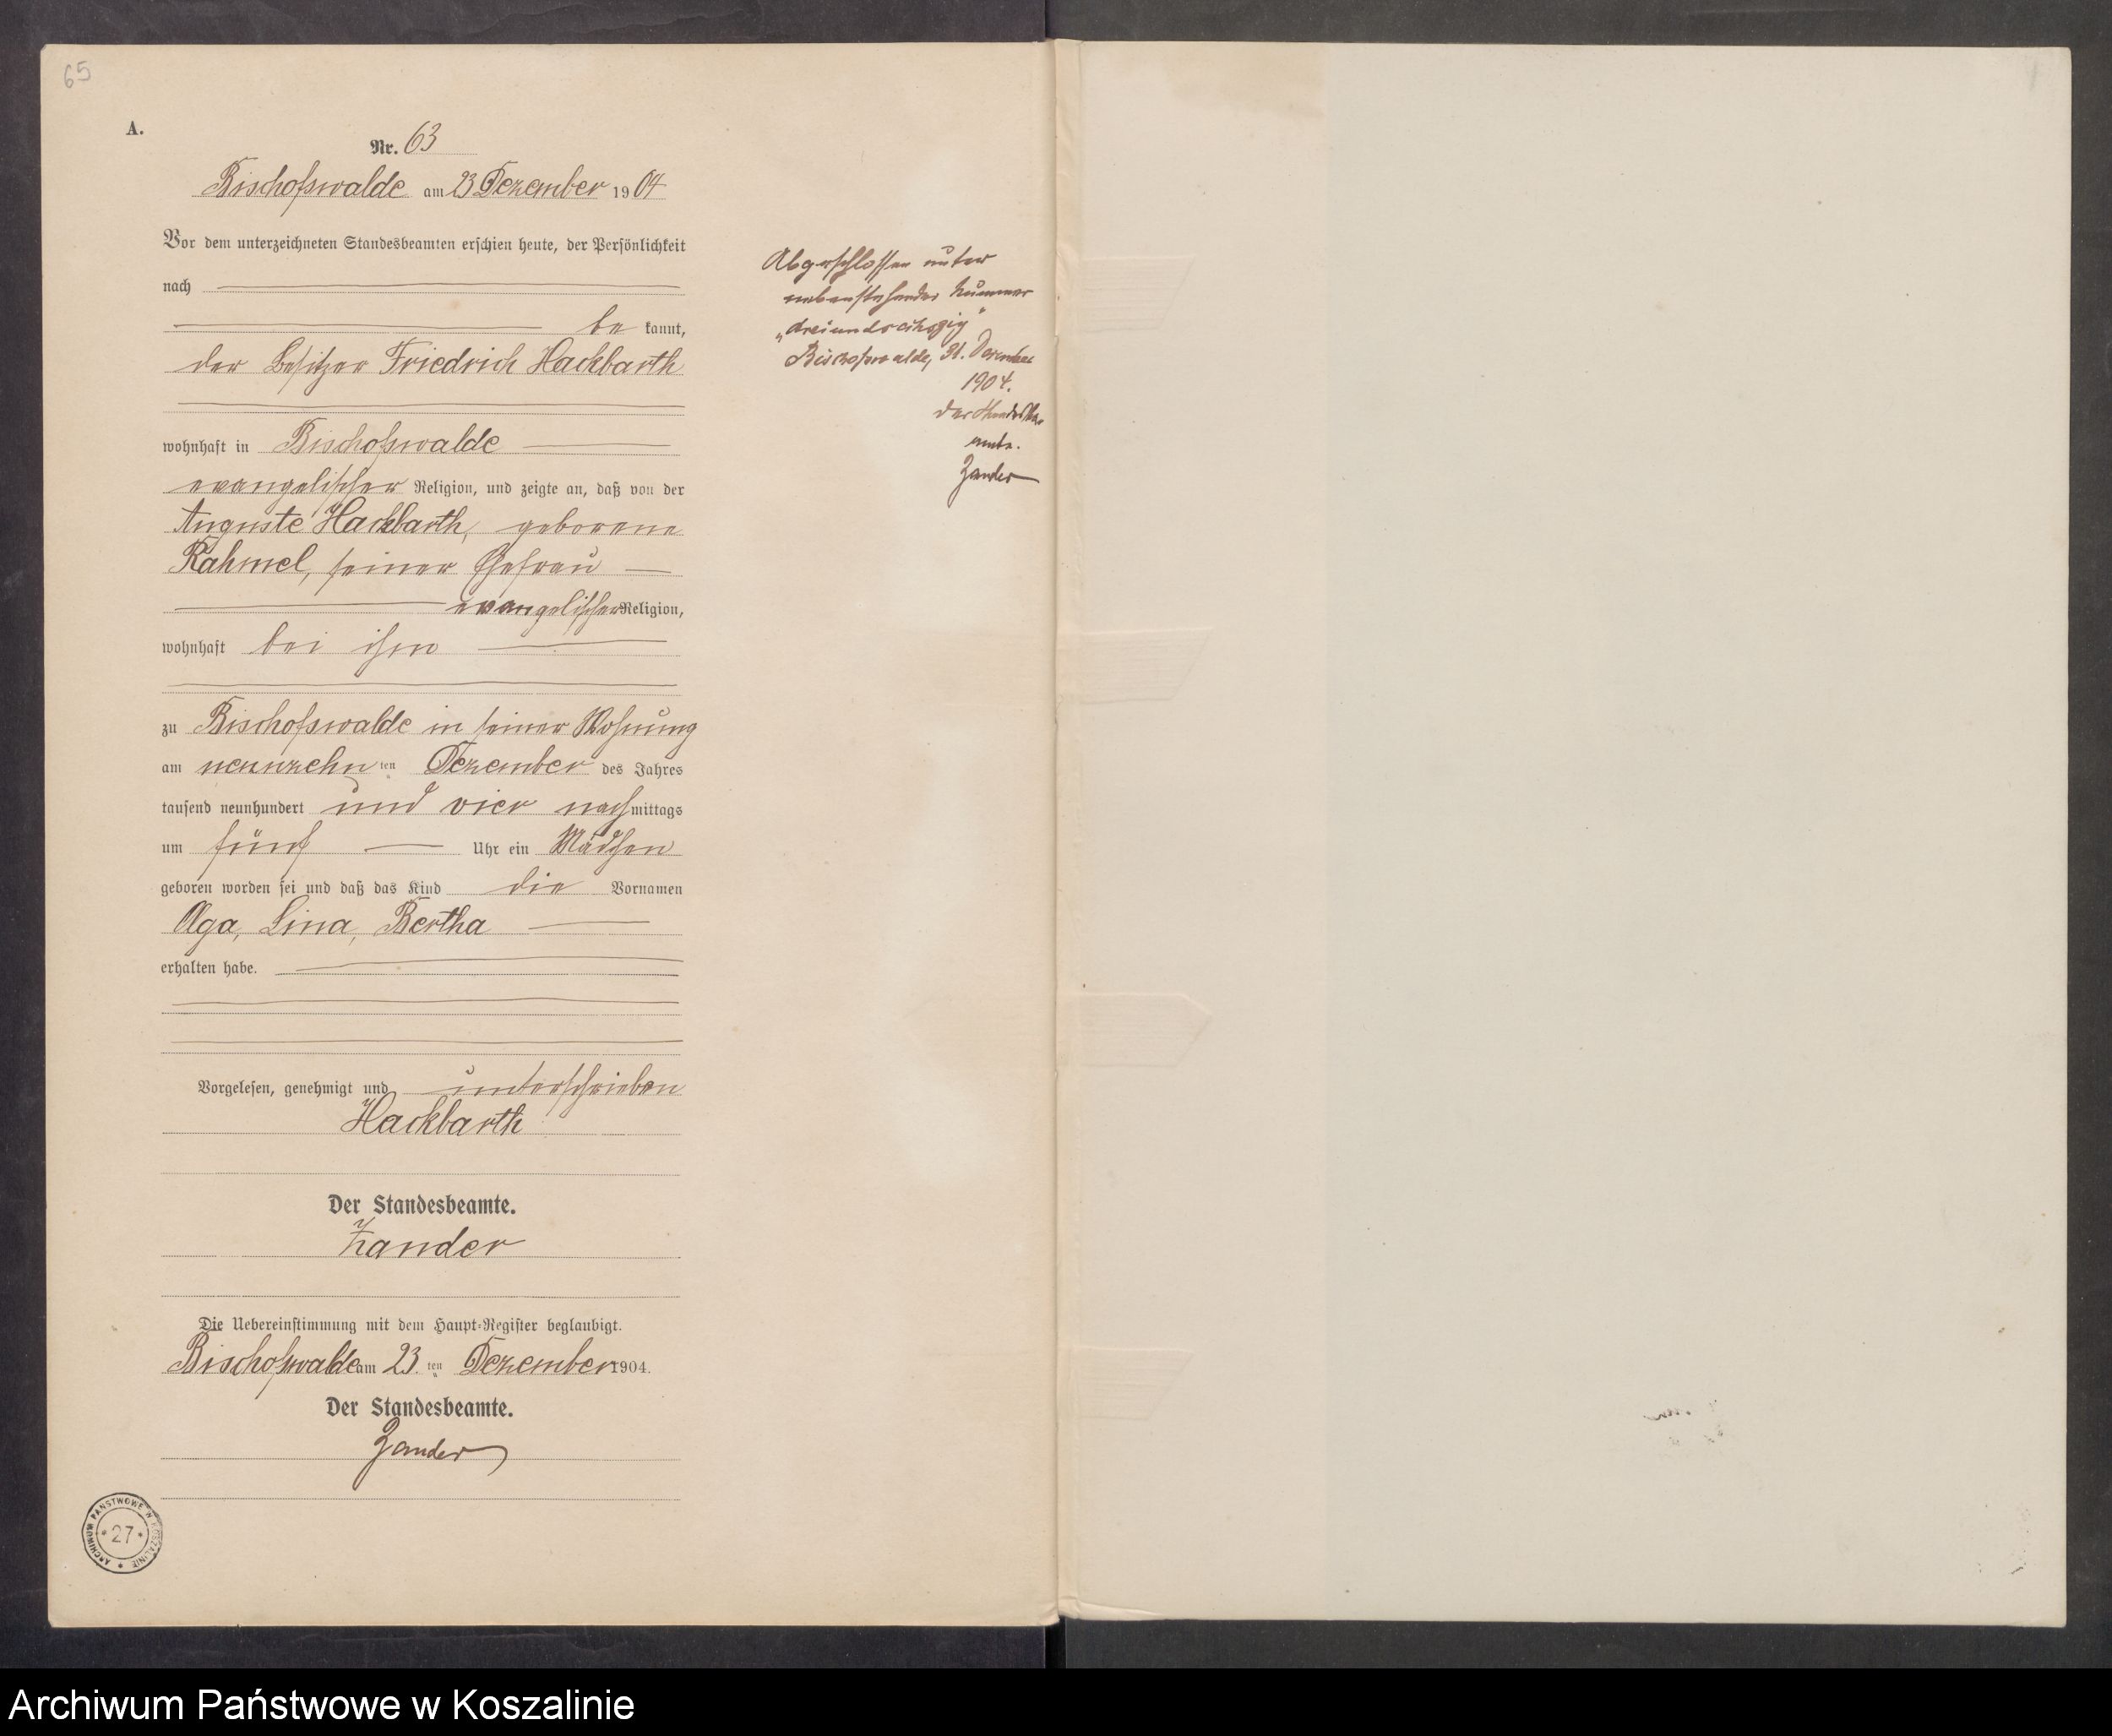 65
A.
Nr. 63
Bischofswalde am 23 Dezember 1904
Vor dem unterzeichneten Standesbeamten erschien heute, der Persönlichkeit
nach
be kannt,
der Besitzer Friedrich Hackbarth
wohnhaft in Bischofswalde
evangelischer Religion, und zeigte an, daß von der
Auguste Hackbarth, geborene
Rahmel, seiner Ehefrau
evangelischer Religion,
wohnhaft bei ihm
zu Bischofswalde in seiner Wohnung
am neunzehn ten Dezember des Jahres
tausend neunhundert und vier nachmittags
um fünf Uhr ein Mädchen
geboren worden sei und daß das Kind die Vornamen
Olga, Lina, Bertha
erhalten habe.
Vorgelesen, genehmigt und unterschrieben
Hackbarth
Der Standesbeamte.
Zander
Die Uebereinstimmung mit dem Haupt-Register beglaubigt.
Bischofswalde am 23. ten Dezember 1904.
Der Standesbeamte.
Zander
Abgeschlossen unter
nebenstehender Nummer
„dreiundsechszig"
Bischofswalde, 31. Dezember
1904.
Der Standesbe-
amte.
Zander
ARCHIWUM PAŃSTWOWE W KOSZALINIE
* 27 *
Archiwum Państwowe w Koszalinie